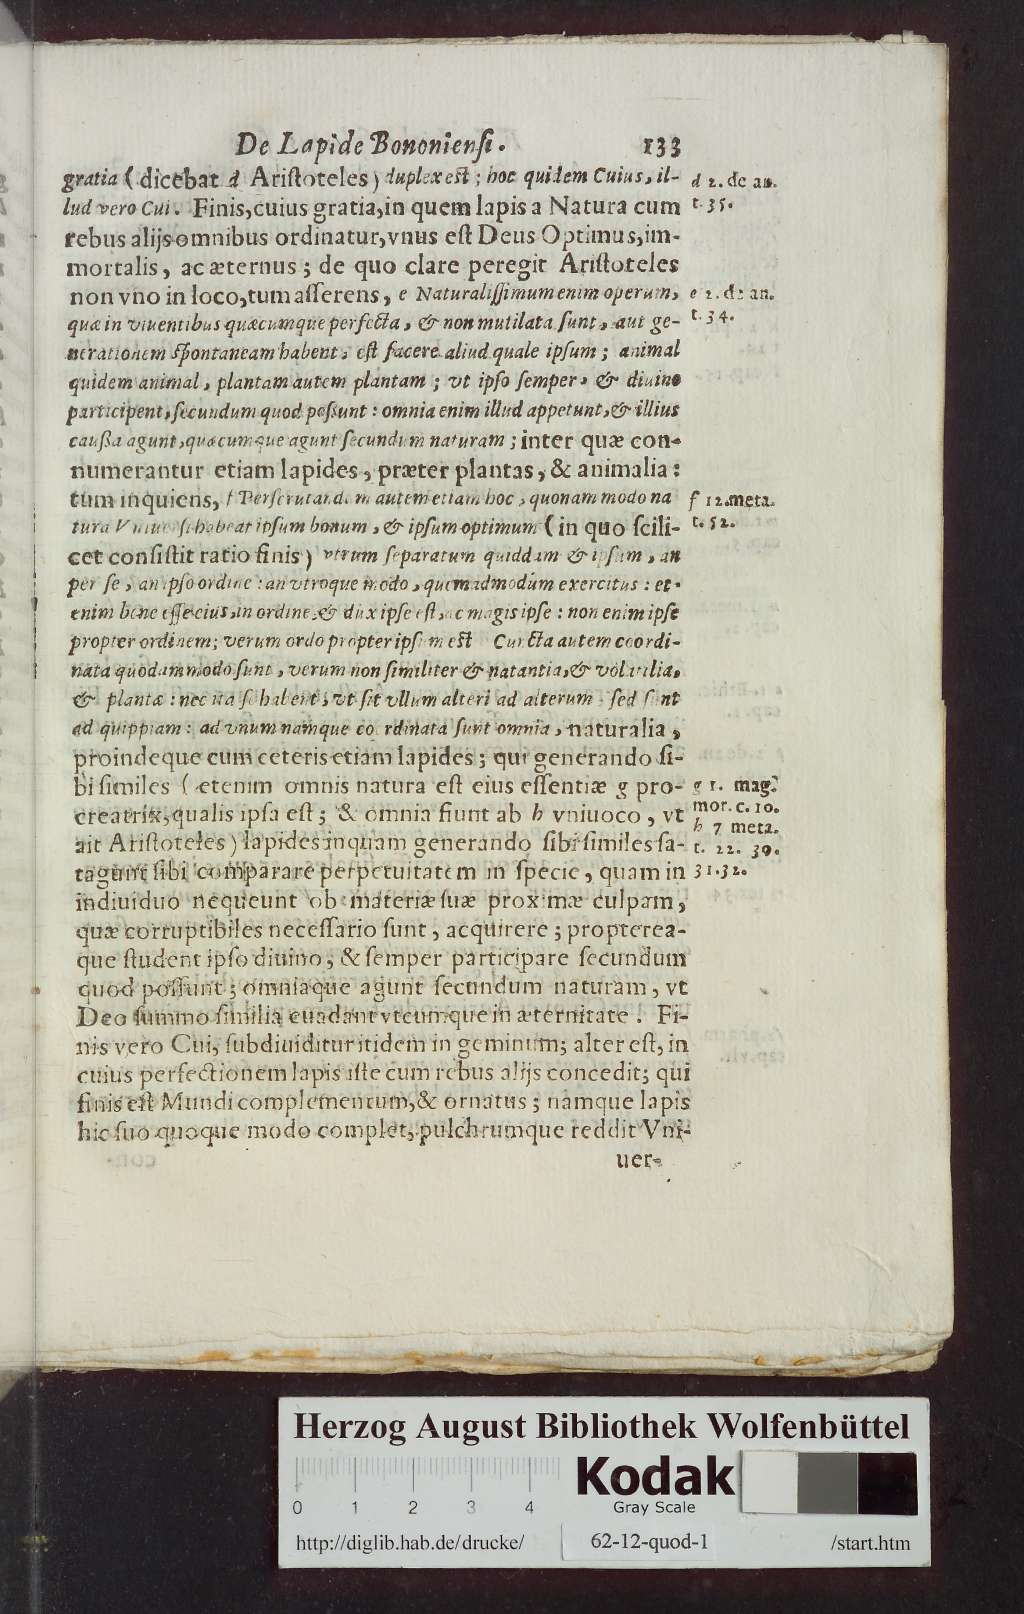 De Lapide Bononiensi. 133
gratia (dicebat d Aristoteles) duplex est; hoc quidem Cuius, il- d 2. de an.
lud vero Cui. Finis, cuius gratia, in quem lapis a Natura cum t. 35.
rebus alijs omnibus ordinatur, vnus est Deus Optimus, im-
mortalis, ac æternus; de quo clare peregit Aristoteles
non vno in loco, tum asserens, e Naturalissimum enim operum, e 2. de an.
quæ in viuentibus quæcumque perfecta, & non mutilata sunt, aut ge- t. 34.
nerationem spontaneam habent, est facere aliud quale ipsum; animal
quidem animal, plantam autem plantam; vt ipso semper, & diuino
participent, secundum quod possunt: omnia enim illud appetunt, & illius
caussa agunt, quæcumque agunt secundum naturam; inter quæ con-
numerantur etiam lapides, præter plantas, & animalia:
tum inquiens, f Perscrutandum autem etiam hoc, quonam modo na f 12. meta.
tura Vniuersi habeat ipsum bonum, & ipsum optimum (in quo scili- t. 52.
cet consistit ratio finis) vtrum separatum quiddam & ipsum, an
per se, an ipso ordine: an vtroque modo, quemadmodùm exercitus: et-
enim bene esse eius, in ordine, & dux ipse est, ac magis ipse: non enim ipse
propter ordinem; verum ordo propter ipsum est Cuncta autem coordi-
nata quodammodo sunt, verum non similiter & natantia, & volatilia,
& plantæ: nec ita se habent, vt sit vllum alteri ad alterum sed sunt
ad quippiam: ad vnum namque coordinata sunt omnia, naturalia,
proindeque cum ceteris etiam lapides; qui generando si-
bi similes (etenim omnis natura est eius essentiæ g pro- g 1. mag.
creatrix, qualis ipsa est; & omnia fiunt ab h vniuoco, vt mor. c. 10.
h 7 meta.
ait Aristoteles) lapides inquam generando sibi similes sa- t. 22. 30.
tagunt sibi comparare perpetuitatem in specie, quam in 31. 32.
indiuiduo nequeunt ob materiæ suæ proximæ culpam,
quæ corruptibiles necessario sunt, acquirere; propterea-
que student ipso diuino, & semper participare secundum
quod possunt; omniaque agunt secundum naturam, vt
Deo summo similia euadant vtcumque in æternitate. Fi-
nis vero Cui, subdiuiditur itidem in geminum; alter est, in
cuius perfectionem lapis iste cum rebus alijs concedit; qui
finis est Mundi complementum, & ornatus; namque lapis
hic suo quoque modo complet, pulchrumque reddit Vni-
uer-
Herzog August Bibliothek Wolfenbüttel
Kodak
Gray Scale
0 1 2 3 4
http://diglib.hab.de/drucke/ 62-12-quod-1 /start.htm